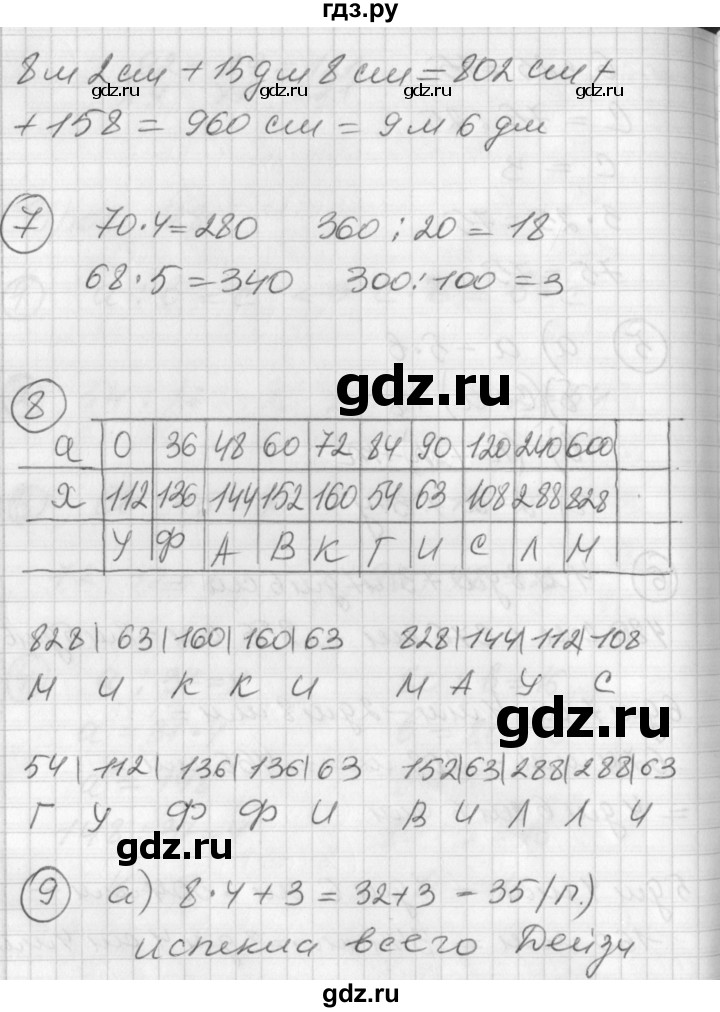 гдз.ру
8м 2см + 15дм 8см = 802 см +
+ 158 = 960 см = 9 м 6 дм
7 70·4=280 360:20=18
68·5=340 300:100=3
gdz.ru
8
а 0 36 48 60 72 84 90 120 240 600
х 112 136 144 152 160 54 63 108 288 828
У Ф А В К Г И С Л М
828| 63|160|160|63 828|144|112|108
М И К К И М А У С
gdz.ru
54|112|136|136|63 152|63|288|288|63
Г У Ф Ф И В И Л Л И
gdz.ru
9 а) 8·4+3=32+3=35(п.)
испекла всего Дейзи
gdz.ru